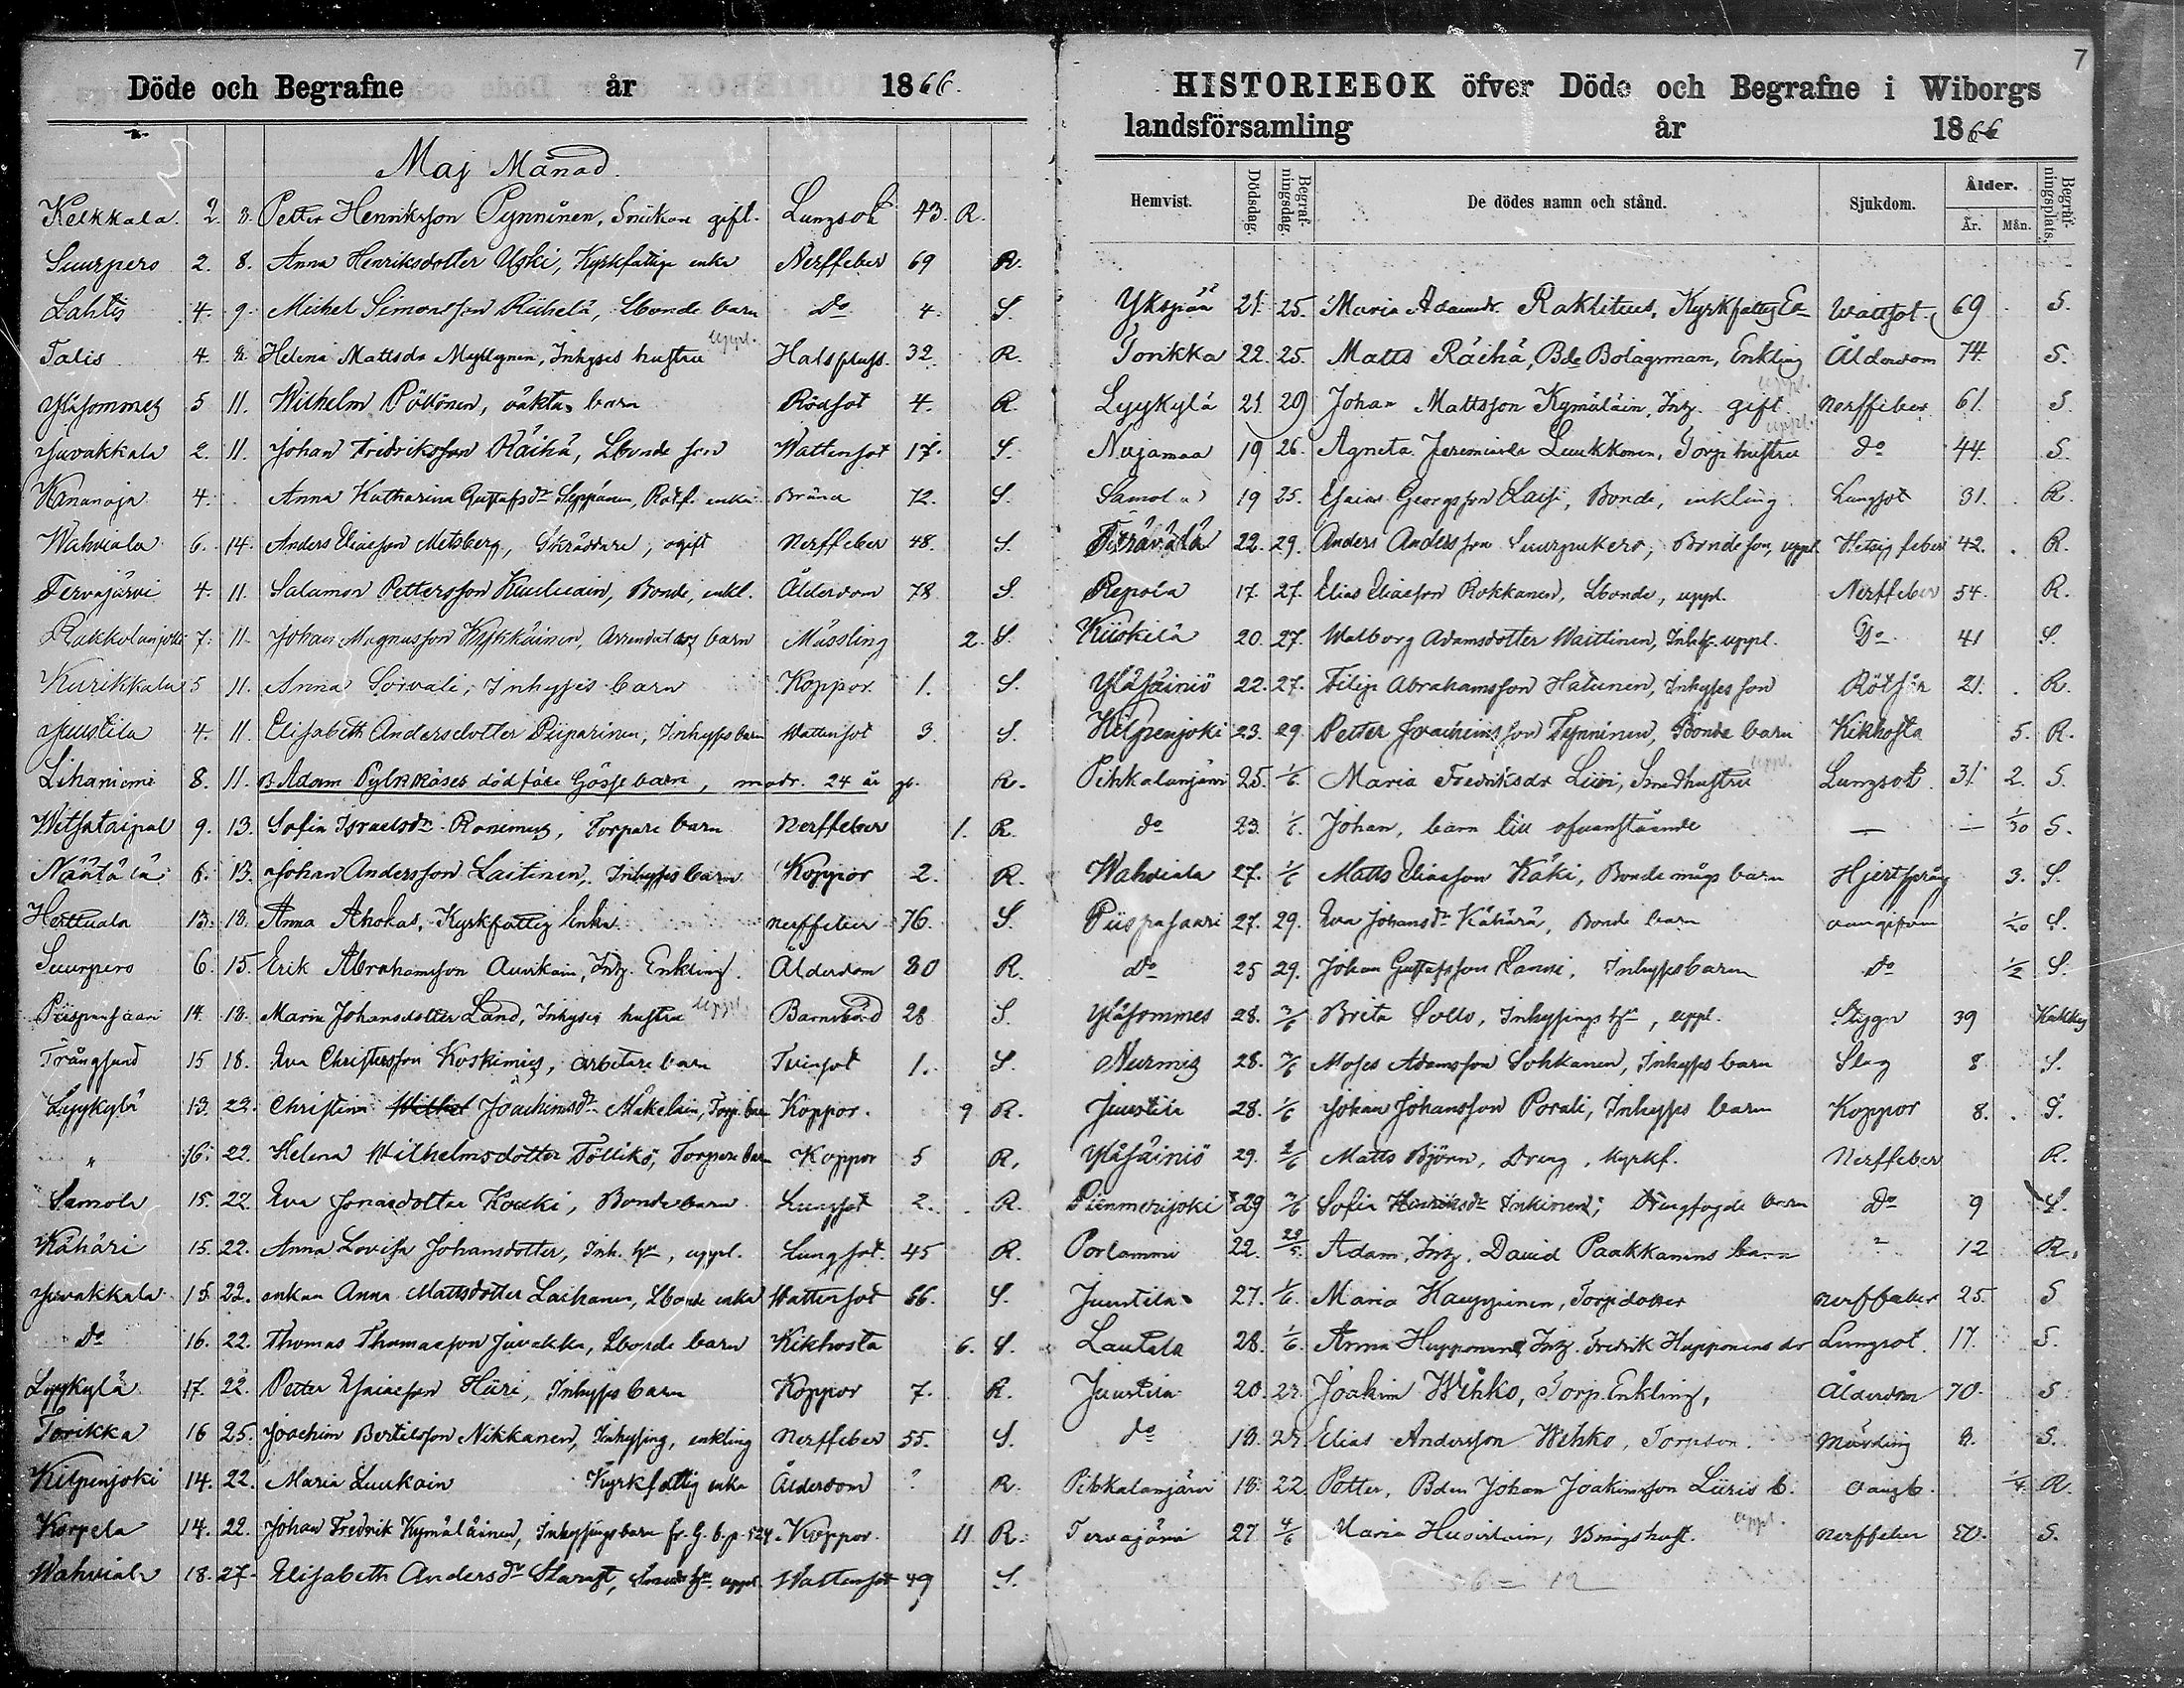 Döde och Begrafne år 1866.
Maj Månad.
Kelkkala 2. 8. Petter Henriksson Pynnönen, Snickare gift. Lungsot 43. R.
Suurpero 2. 8. Anna Henriksdotter Uski, Kyrkfattige enka Nerffeber 69 R.
Lahtis 4. 9. Michel Simonsson Riihelä, Lbonde barn do 4. S.
Talis 4. 8. Helena Mattsdr Myllynen, Inhyses hustru uppl. Halsfluss. 32 R.
Yläsommez 5 11. Wilhelm Pöllönen, väktar barn Rödsot 4. R.
Juvakkala 2. 11. Johan Fridriksson Räihä, Lbonde son Wattensot 17. S.
4. Anna Katharina Gustafsdr Seppänen, Rotef. enka Bråna 72. S.
Wahviala 6. 14. Anders Eliasson Metsberg, Skräddare, ogift Nerffeber 48. S.
Tervajärvi 4. 11. Salamon Pettersson Bonde, enkl. Ålderdom 78 S.
Rakkolanjoki 7. 11. Johan Magnusson Kykkäinen, Arrendatorz barn Mässling 2. S.
Kurikkala 5 11. Anna Sorvali, Inhyses barn Koppor 1. S.
Juustila 4. 11. Elisabeth Andersdotter Piiparinen, Inhyses barn Wattensot 3. S.
Lihaniemi 8. 11. B. Adam Pylkkäses dödföre Gösse barn, modr. 24 år gl. R.
Witsataipal 9. 13. Sofia Israelsdr Ronimus, Torpare barn Nerffeber 1. R.
Näätälä 6. 13. Johan Andersson Laitinen, Inhyses barn Koppor 2. R.
Herttuala 13. 18. Anna Ahokas, Kyrkfattig Enka Nerffeber 76. S.
Suurpero 6. 15. Erik Abrahamsson Auvikain, Inhz. Enkling. Ålderdom 80 R.
Piispansaari 14. 18. Maria Johansdotter Land, Inhyses hustru uppl. Barnsbörd 28 S.
Trångsund 15 18. Eva Christersson Koskimies, arbetare barn Tvinsot 1. S.
Lyykylä 13. 22. Christina Joachimsdr Mäkeläin, Torp. barn Koppor. 9 R.
" 16. 22. Helena Wilhelmsdotter Töllikö, Torpare barn Koppor 5 R.
Samola 15. 22. Eva Jonasdotter Koski, Bonde barn Lungsot 2. R.
Kähäri 15. 22. Anna Lovisa Johansdotter, Inh. hu, uppl. Lungsot 45 R.
Juvakkala 15. 22. enkan Anna Mattsdotter Laihanen, Lbonde enka Wattensot 66. S.
do 16. 22. Thomas Thomasson Juvakka, Lbonde barn Kikhosta 6. S.
Lyykylä 17. 22. Petter Esaiasson Hiiri, Inhyses barn Koppor 7. R.
Torikka 16 25. Joachim Bertilsson Nikkanen, Inhysing, enkling Nerffeber 55. S.
Kilpenjoki 14. 22. Maria Luukain Kyrkfattig enka Ålderdom ? R.
Korpela 14. 22. Johan Fredrik Kymäläinen, Inhysings barn fr. G. b. p. 524. Koppor. 11 R.
Wahviala 18. 27. Elisabeth Andersdr Stamft, hu uppl. Wattensot 49 S.
7
HISTORIEBOK öfver Döde och Begrafne i Wiborgs
landsförsamling år 1866
Hemvist. Dödsdag. Begrafningsdag. De dödes namn och stånd. Sjukdom. Ålder. År. Mån. Begrafningsplats.
Ykspää 21. 25. Maria Adamsdr. Kyrkfattig En Wattsot 69 S.
Torikka 22. 25. Matts Räihä, Bde Bolagsman, Enkling Ålderdom 74. S.
Lyykylä 21. 29 Johan Mattsson Kymäläin, Inhz. gift uppl. Nerffeber 61. S
Nujamaa 19 26. Agneta Jeremiasdr Luukkonen, Torp. hustru uppl. do 44. S.
Samola 19 25. Esaias Georgsson Laisi, Bonde, enkling Lungsot 31. R.
Terävälä 22. 29. Anders Andersson Suurpukero, Bonde son, uppl. Hetsig feber 42. R.
Repola 17. 27. Elias Eliasson Rokkanen, Lbonde, uppl. Nerffeber 54. R.
Kiiskilä 20. 27. Walborg Adamsdotter Waittinen, Inhys. uppl. Do 41 S.
Yläsäiniö 22. 27. Filip Abrahamsson Hatunen, Inhyses son Rötsår 21. R.
Kilpenjoki 23. 29 Petter Joachimsson Tynninen, Bonde barn Kikhosta 5. R.
Pihkalanjärvi 25. 1/6 Maria Fredriksdr Liiri, Smedhustru uppl. Lungsot 31 2. S.
do 23. 1/6. Johan, barn till ofvanstående — — 1/30 S.
Wahviala 27. 1/6 Matts Eliasson Käki, Bonde mågs barn Hjertspråg 3. S.
Piispasaari 27. 29. Eva Johansdr Kähärä, Bonde barn oangifven 1/20 S.
do 25 29. Johan Gustafsson Lanni, Inhyses barn do 1/2 S.
Yläsommes 28. 3/6 Brita Sollo, Inhysings hu, uppl. Stygn 39
Nurmis 28. 3/6 Moses Adamsson Sohkanen, Inhyses barn Slag 8 S.
Juustila 28. 1/6 Johan Johansson Porali, Inhyses barn Koppor 8. S.
Yläsäiniö 29. 2/6 Matts Björn, Dreng, kyrkf. Nerffeber R.
29 3/6 Sofia Henriksdr Inkinen, Drengfogde barn Do 9 S.
Porlammi 22. 29/5 Adam, Inhz. David Paakkanens barn " 12 R.
Juustila 27. 1/6. Maria Kauppinen, Torpdotter Nerffeber 25. S
Lautala 28. 1/6. Anna Hupponen, Inhz. Fredrik Hupponens dr Lungsot. 17. S.
Juustila 20. 27. Joakim Wihko, Torp. Enkling, Ålderdom 70. S
do 18. 27. Elias Andersson Wihko, Torpson. Mässling 8. S.
Pihkalanjärvi 18. 22 Petter, Bden Johan Joakimsson Liiris b. oangb. 1/4. R.
Tervajärvi 27 4/6 Maria Huovilain, hust. uppl. Nerffeber 50. S.